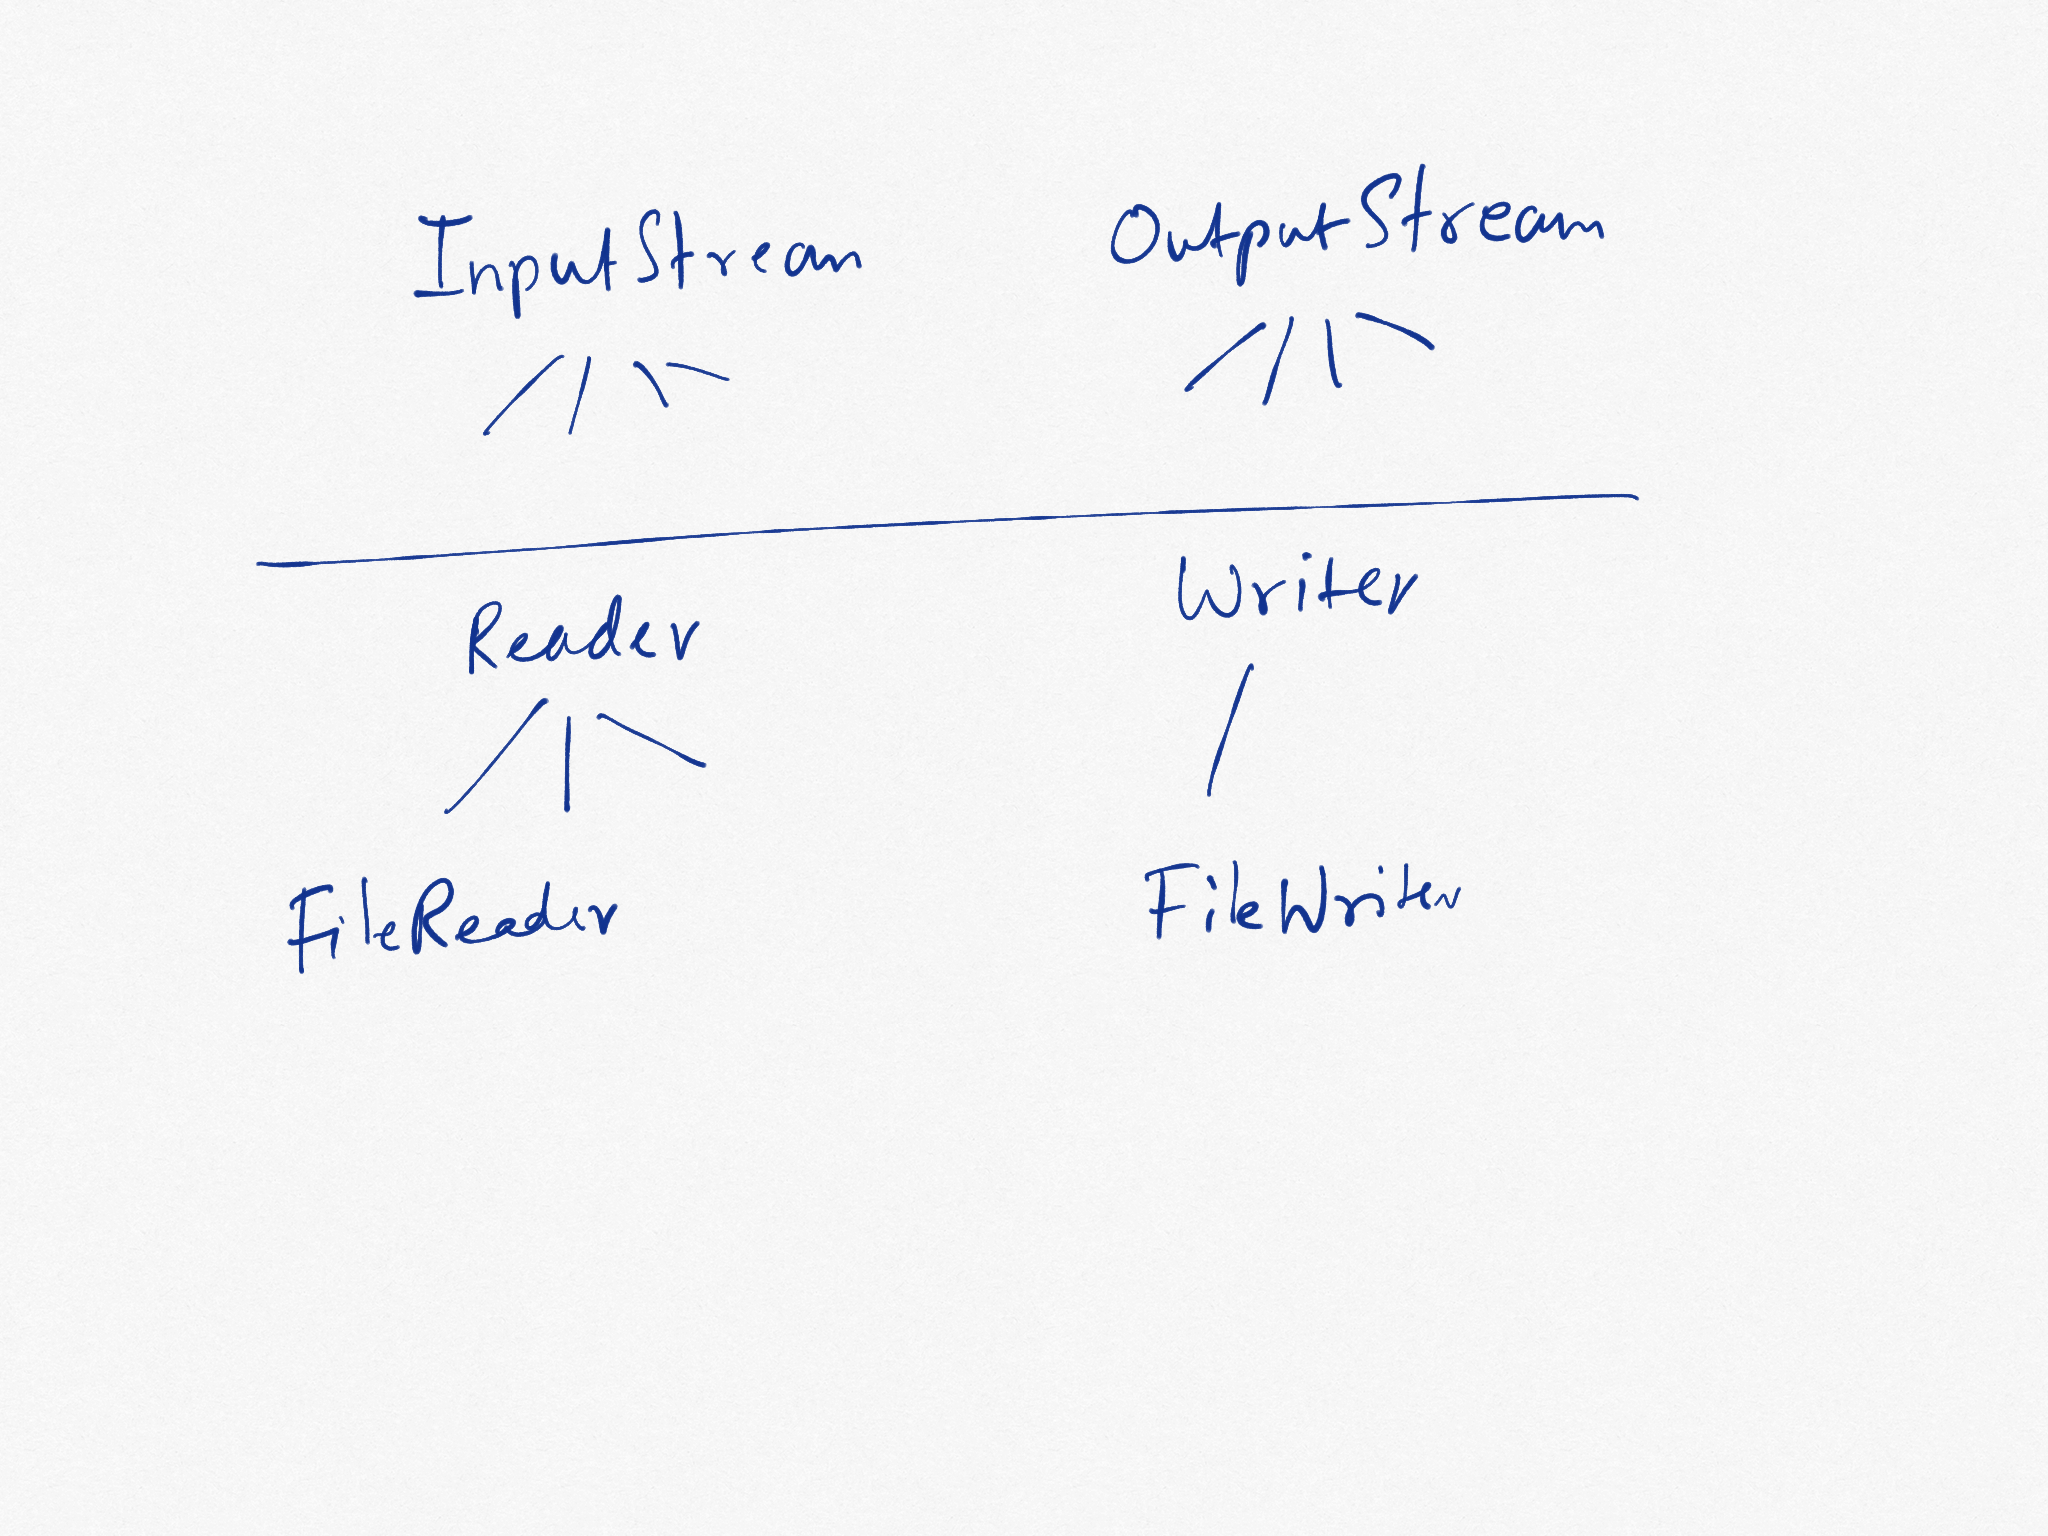 InputStream
OutputStream
Reader
Writer
FileReader
FileWriter